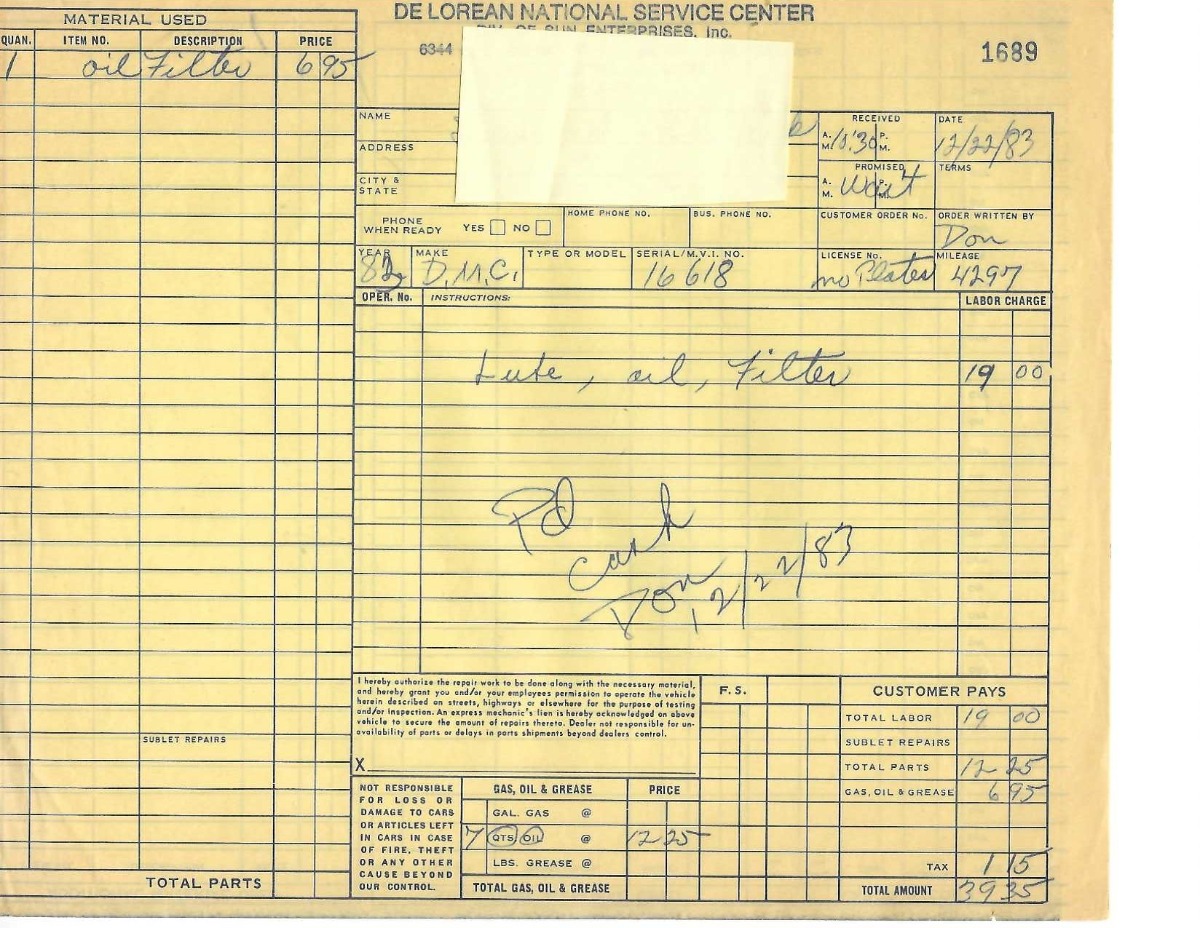 DE LOREAN NATIONAL SERVICE CENTER
DIV. OF SUN ENTERPRISES, Inc.
6344
1689
MATERIAL USED
QUAN. ITEM NO. DESCRIPTION PRICE
1 oil Filter 6 95
SUBLET REPAIRS
TOTAL PARTS
NAME
ADDRESS
CITY & STATE
RECEIVED A.M. 10:30 P.M.
DATE 12/22/83
PROMISED A.M. Wait P.M.
TERMS
PHONE WHEN READY YES NO
HOME PHONE NO.
BUS. PHONE NO.
CUSTOMER ORDER No.
ORDER WRITTEN BY Don
YEAR 82 MAKE D.M.C. TYPE OR MODEL SERIAL/M.V.I. NO. 16618 LICENSE No. no Plates MILEAGE 4297
OPER. No. INSTRUCTIONS: LABOR CHARGE
Lube, oil, Filter 19 00
Pd
Cash
Don 12/22/83
I hereby authorize the repair work to be done along with the necessary material,
and hereby grant you and/or your employees permission to operate the vehicle
herein described on streets, highways or elsewhere for the purpose of testing
and/or inspection. An express mechanic's lien is hereby acknowledged on above
vehicle to secure the amount of repairs thereto. Dealer not responsible for un-
availability of parts or delays in parts shipments beyond dealers control.
X
NOT RESPONSIBLE
FOR LOSS OR
DAMAGE TO CARS
OR ARTICLES LEFT
IN CARS IN CASE
OF FIRE, THEFT
OR ANY OTHER
CAUSE BEYOND
OUR CONTROL.
GAS, OIL & GREASE PRICE
GAL. GAS @
7 QTS. OIL @ 12 25
LBS. GREASE @
TOTAL GAS, OIL & GREASE
F.S.
CUSTOMER PAYS
TOTAL LABOR 19 00
SUBLET REPAIRS
TOTAL PARTS 12 25
GAS, OIL & GREASE 6 95
TAX 1 15
TOTAL AMOUNT 39 35